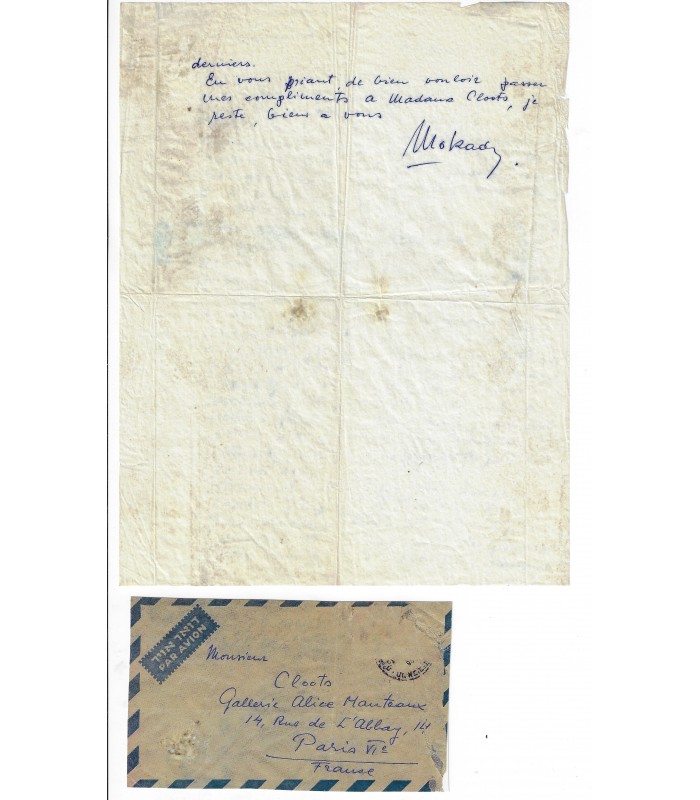 derniers.
En vous priant, de bien vouloir passer
mes compliments a Madame Cloots, je
reste, biens a vous
Mokady.
דואר אויר
PAR AVION
Monsieur
Cloots
Gallerie Alice Manteaux
14, Rue de L'Abbay, 14
Paris VIe
France